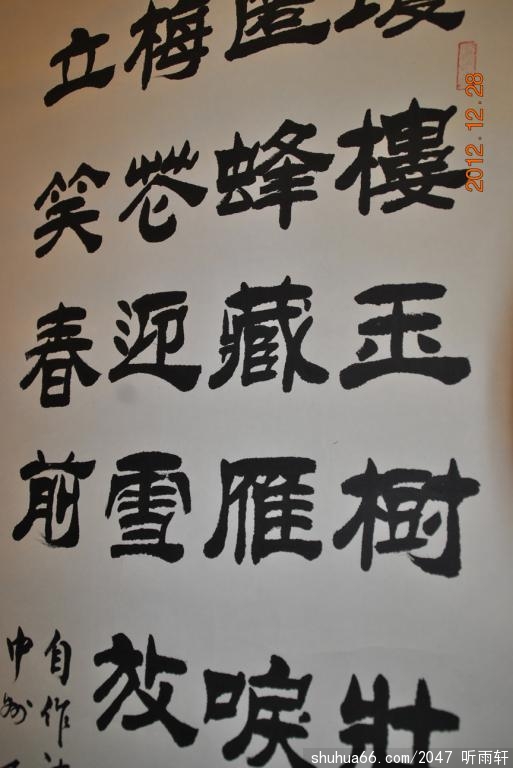 樓玉樹壯
匿蜂藏雁唳
梅花迎雪放
立笑春前
自作
中州
2012.12.28
shuhua66.com/2047 听雨轩